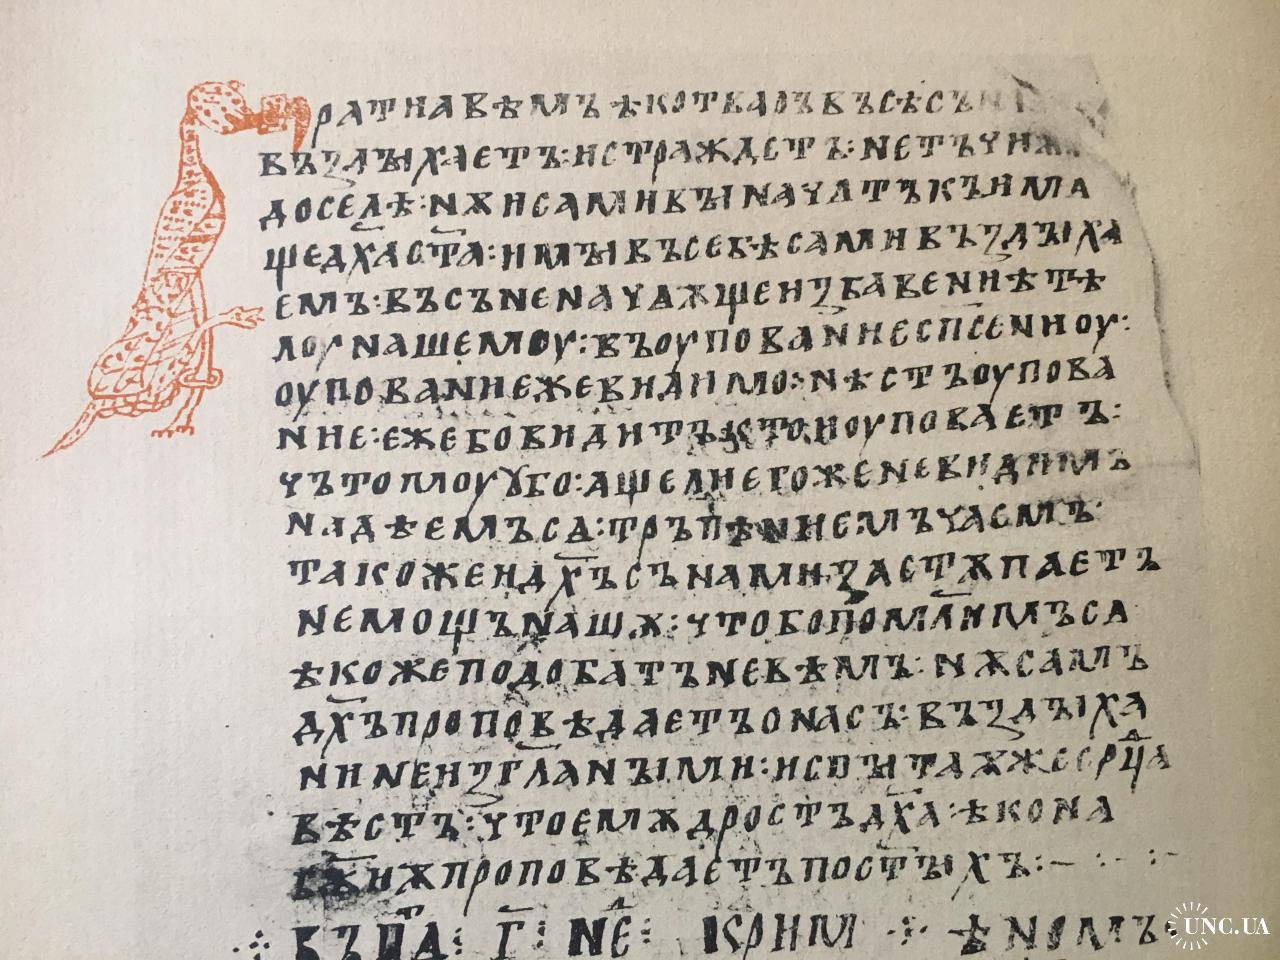 ратиѣ вѣмъ ѣко тварь въсѣ съ
въꙁдꙑхаетъ: и страждетъ: нетъчиѭ
доселѣ: нѫ и сами вꙑ начѧтъкъ има
ще дх҃а ст҃а: и мꙑ въ себѣ сами въꙁдꙑха
емъ: въсꙑненаꙗ чаѫще иꙁбавениѣ тѣ
лоу нашемоу: въ оупование сп҃сени оу:
оупование же видимо: нѣстъ оупова
ние: еже бо видитъ кто и оуповаетъ:
чъто ли оубо: аще ли егоже не видимъ
надѣемъ сѧ: тръпѣниемъ чаемъ
такоже и дх҃ъ съ нами ꙁастѫпаетъ
немощъ нашѫ: что бо помл҃имъ сѧ
ѣкоже подобатъ не вѣмъ: нѫ самъ
дх҃ъ проповѣдаетъ о насъ: въꙁдꙑха
ни неиꙁгл҃анꙑми: испꙑтаѫ же сер҃ца
вѣстъ: что е мѫдростъ дх҃а: ѣко на
проповѣдаетъ по ст҃ꙑхъ:
въ па҃: г҃: не҃: к римѣномъ
UNC.UA